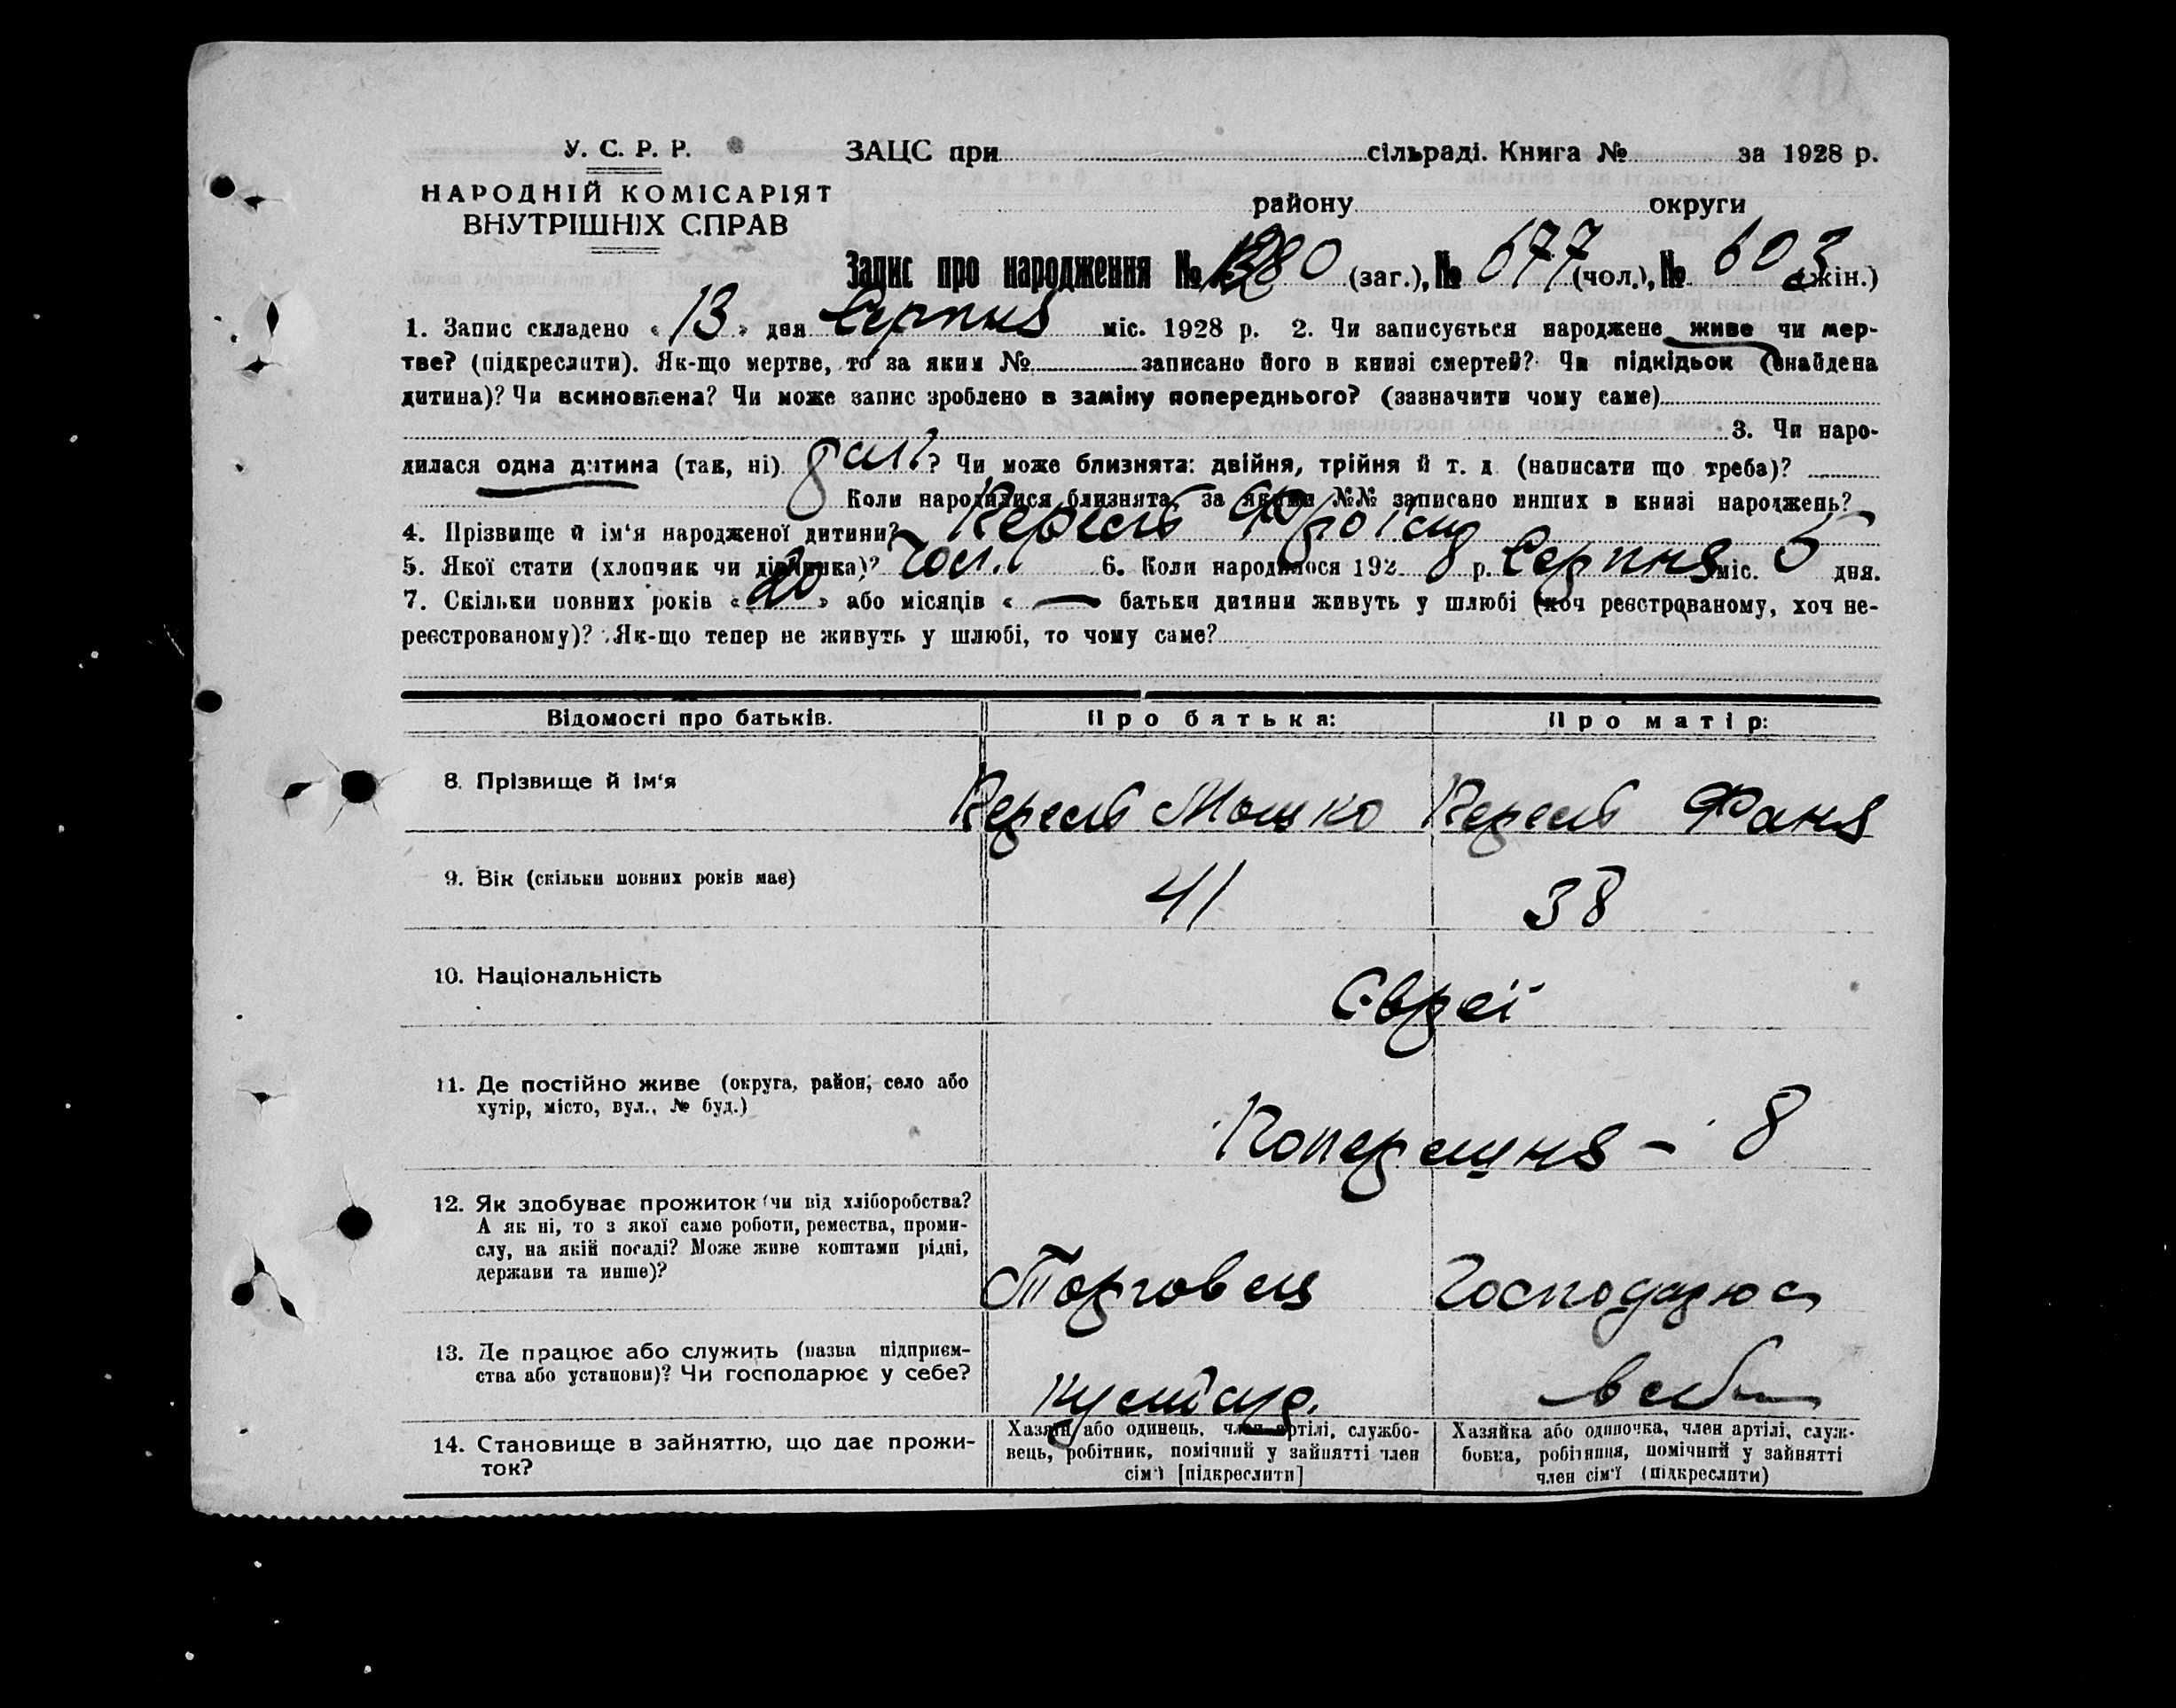 У. С. Р. Р.
НАРОДНІЙ КОМІСАРІЯТ
ВНУТРІШНІХ СПРАВ
ЗАЦС при сільраді. Книга № за 1928 р.
району округи
Запис про народження № 1280 (заг.), № 677 (чол.), № 603 (жін.)
1. Запис складено « 13 » дня Серпня міс. 1928 р. 2. Чи записується народжене живе чи мер-
тве? (підкреслити). Як-що мертве, то за яким № записано його в книзі смертей? Чи підкідьок (знайдена
дитина)? Чи всиновлена? Чи може запис зроблено в заміну попереднього? (зазначити чому саме)
3. Чи наро-
дилася одна дитина (так, ні) ? Чи може близнята: двійня, трійня й т. д. (написати що треба)?
Коли народилися близнята, за якими №№ записано инших в книзі народжень?
4. Прізвище й ім'я народженої дитини?
5. Якої стати (хлопчик чи дівчинка)? Чол. 6. Коли народилося 192 8 р. Серпня міс. 5 дня.
7. Скільки повних років « 20 » або місяців « — батьки дитини живуть у шлюбі (хоч реєстрованому, хоч не-
реєстрованому)? Як-що тепер не живуть у шлюбі, то чому саме?
Відомості про батьків. Про батька: Про матір:
8. Прізвище й ім'я Мошко Фаня
9. Вік (скільки повних років має) 41 38
10. Національність Євреї
11. Де постійно живе (округа, район, село або
хутір, місто, вул., № буд.)
– 8
12. Як здобуває прожиток (чи від хліборобства?
А як ні, то з якої саме роботи, ремества, проми-
слу, на якій посаді? Може живе коштами рідні,
держави та инше)?
Торговець
13. Де працює або служить (назва підприєм-
ства або установи)? Чи господарює у себе?
кустар.
14. Становище в зайняттю, що дає прожи-
ток?
Хазяїн або одинець, член артілі, службо-
вець, робітник, помічний у зайнятті член
сім'ї [підкреслити]
Хазяйка або одиночка, член артілі, служ-
бовка, робітниця, помічний у зайнятті
член сім'ї (підкреслити)